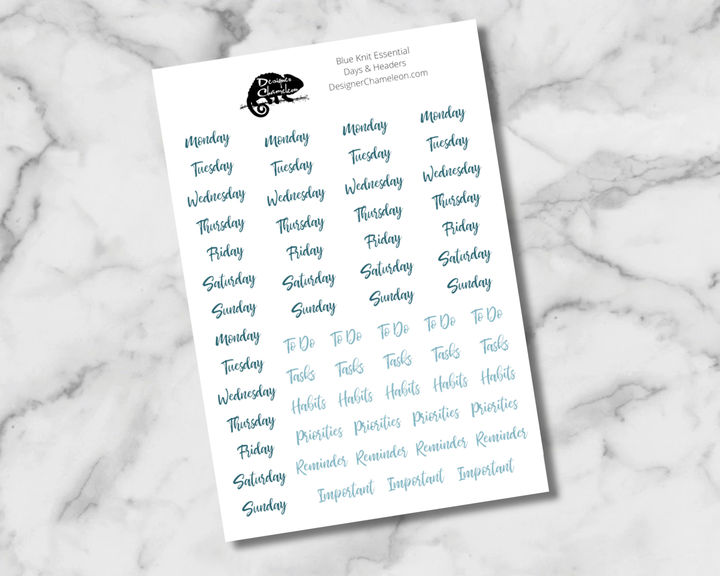 Designer
Chameleon
Blue Knit Essential
Days & Headers
DesignerChameleon.com
Monday Monday Monday Monday
Tuesday Tuesday Tuesday Tuesday
Wednesday Wednesday Wednesday Wednesday
Thursday Thursday Thursday Thursday
Friday Friday Friday Friday
Saturday Saturday Saturday Saturday
Sunday Sunday Sunday Sunday
Monday To Do To Do To Do To Do To Do
Tuesday Tasks Tasks Tasks Tasks Tasks
Wednesday Habits Habits Habits Habits Habits
Thursday Priorities Priorities Priorities Priorities
Friday Reminder Reminder Reminder Reminder
Saturday Important Important Important
Sunday